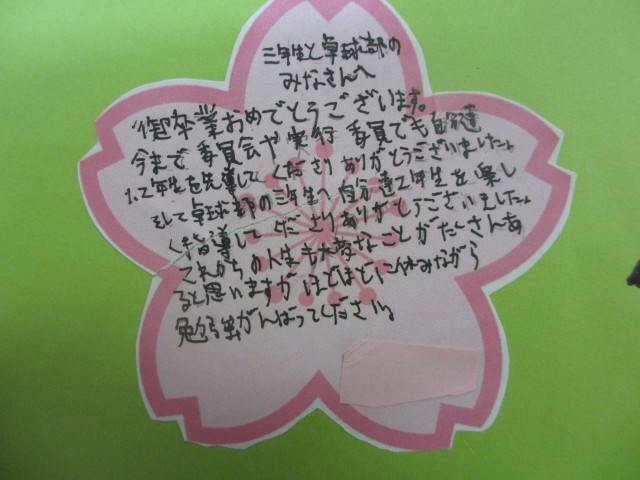 三年生と卓球部の
みなさんへ
御卒業おめでとうございます。
今まで委員会や実行委員でも自分達
1,2年生を先導してくださりありがとうございました。
そして卓球部の三年生へ自分達2年生を楽し
く指導してくださりありがとうございました。
これからの人生も大変なことがたくさんあ
ると思いますがほどほどに休みながら
勉強がんばってください。